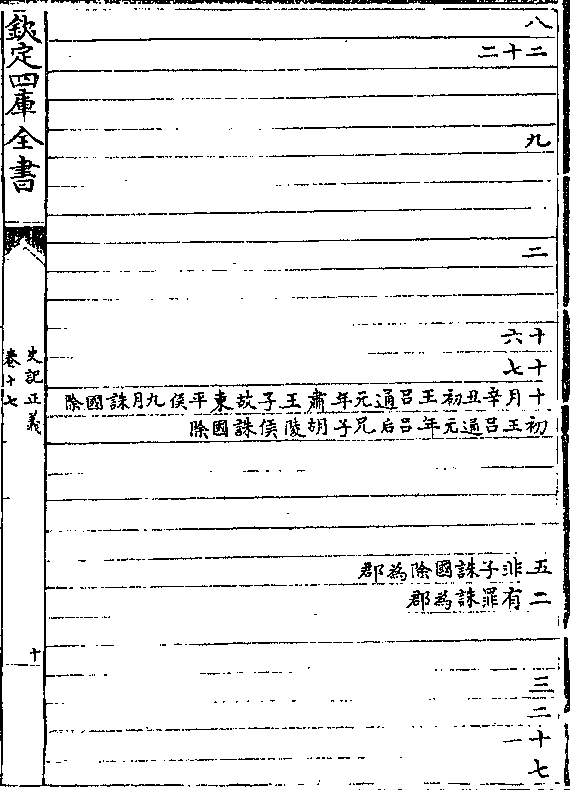 八
二十二
九
二
十六
十七
十月辛丑初王呂通元年肅王子故東平侯九月誅國除
初王呂通元年呂后兄子胡陵侯誅國除
五非子誅國除為郡
二有罪誅為郡
三
二
十一
七
欽定四庫全書
史記正義
卷十七
十